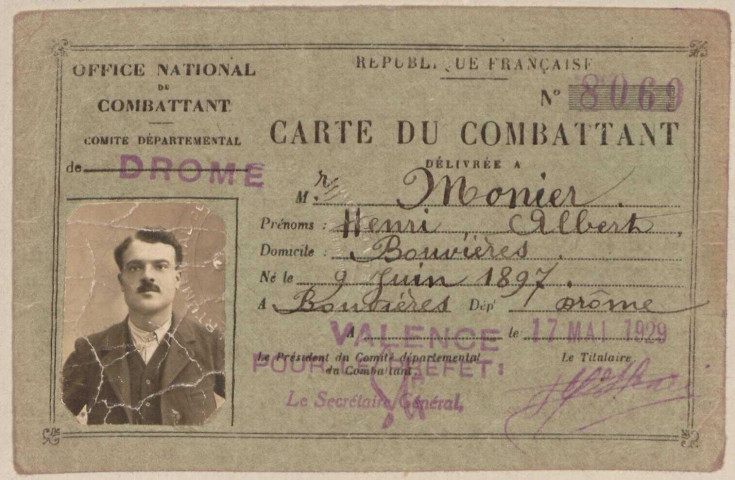 OFFICE NATIONAL
DU
COMBATTANT
COMITÉ DÉPARTEMENTAL
de DROME
RÉPUBLIQUE FRANÇAISE
N° 8069
CARTE DU COMBATTANT
DÉLIVRÉE A
M.r Monier.
Prénoms : Henri, Albert,
Domicile : Bouvières.
Né le 9 Juin 1897.
A Bouvières Dépt Drôme
A VALENCE le 17 MAI 1929
Le Président du Comité départemental
du Combattant,
Le Titulaire
POUR LE PREFET:
Le Secrétaire Général,